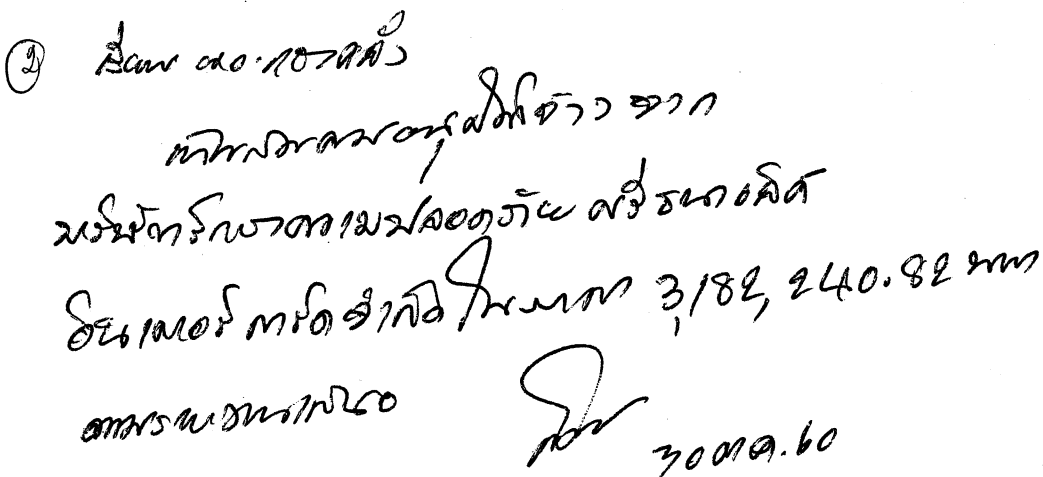 ② เรียน ผอ.กองคลัง
เห็นสมควรอนุมัติจ้าง จาก
บริษัทรักษาความปลอดภัย ศรีธนาอลิค
อินเตอร์การ์ด จำกัด ในราคา 3,182,240.82 บาท
ตามรายงานเสนอ
30 ต.ค. 60